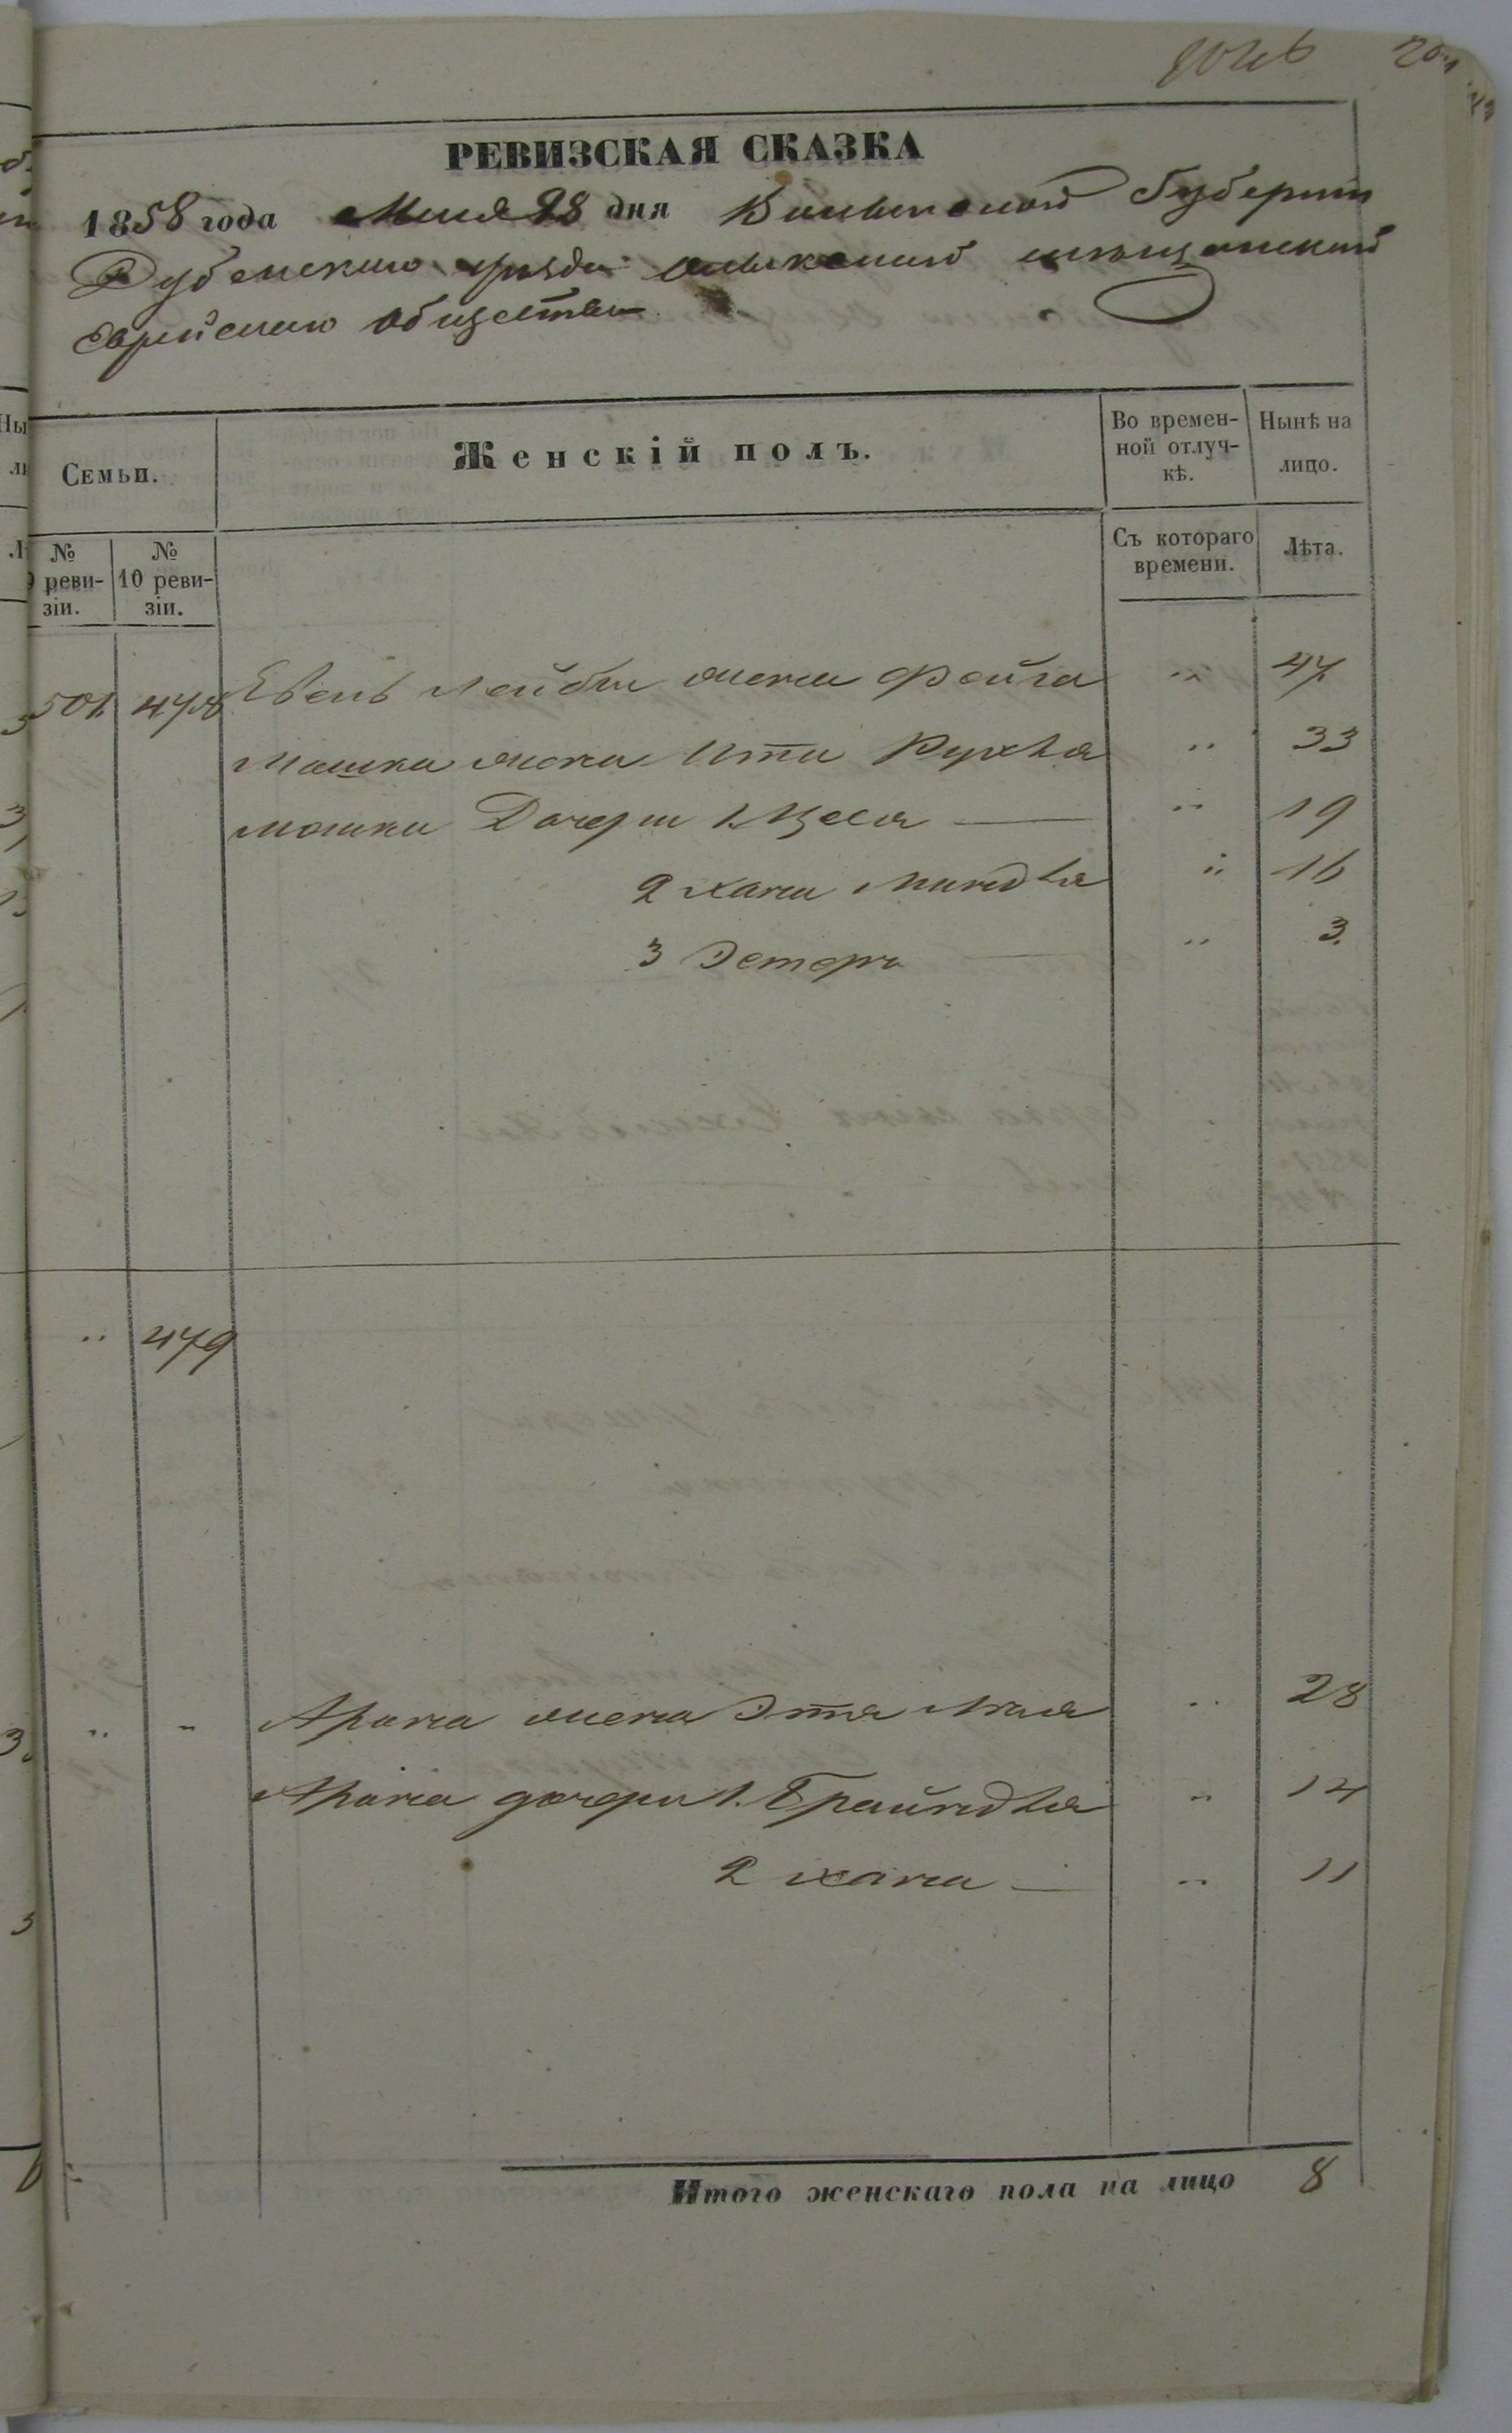 РЕВИЗСКАЯ СКАЗКА
1858 года Мая 28 дня Волынской Губернии
Дубенскаго уѣзда мѣщанской
Еврейскаго Общества
Семьи.
Женскій полъ.
Во времен-
ной отлуч-
кѣ.
Нынѣ на
лицо.
№
9 реви-
зіи.
№
10 реви-
зіи.
Съ котораго
времени.
Лѣта.
501 478 Лейбы жена Фейга „ 47
Мошка жена Ити Рухля „ 33
мошки Дочери 1. Цеся „ 19
2 хана Миндля „ 16
3 Эстеръ „ 3.
„ 479
„ „ Арона жена Эстя „ 28
Арона дочери 1. Брайндля „ 14
2 хана „ 11
Итого женскаго пола на лицо 8